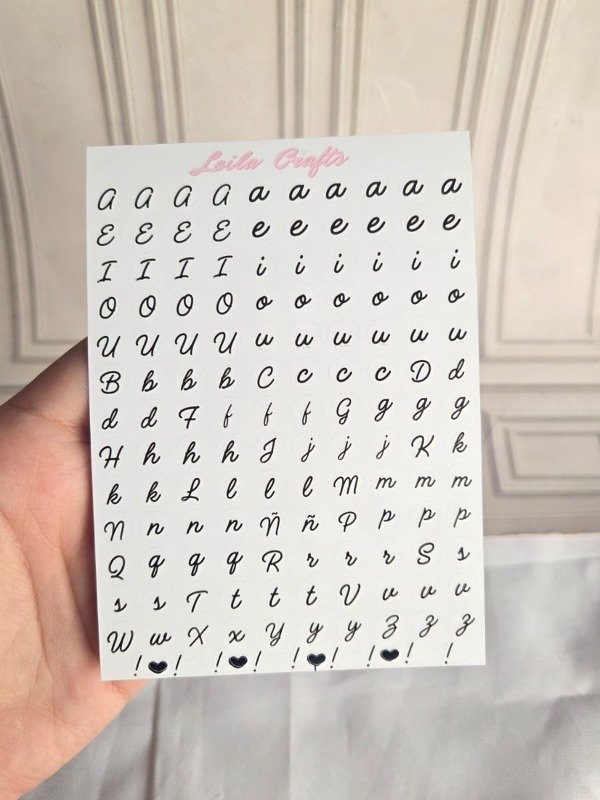 Leila Crafts
A A A A a a a a a a
E E E E e e e e e e
I I I I i i i i i i
O O O O o o o o o o
U U U U u u u u u u
B b b b C c c c D d
d d F f f f G g g g
H h h h J j j j K k
k k L l l l M m m m
N n n n Ñ ñ P p p p
Q q q q R r r r S s
s s T t t t V v v v
W w X x Y y y Z z z
! 🖤 ! ! 🖤 ! ! 🖤 ! ! 🖤 ! !